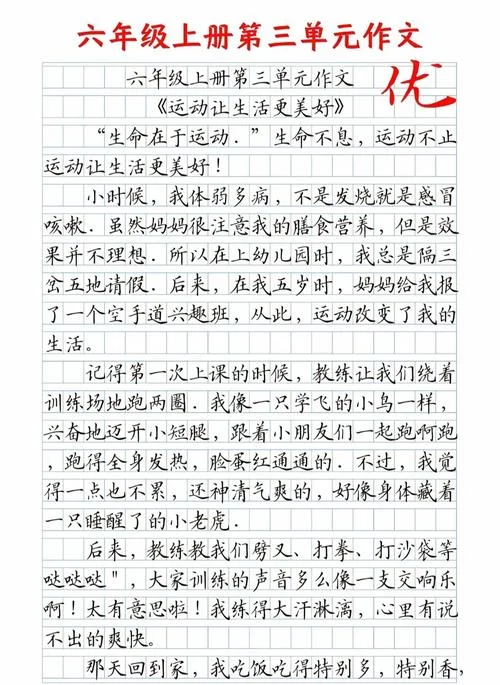 六年级上册第三单元作文
六年级上册第三单元作文
优
《运动让生活更美好》
“生命在于运动.”生命不息,运动不止
运动让生活更美好!
小时候,我体弱多病,不是发烧就是感冒
咳嗽.虽然妈妈很注意我的膳食营养,但是效
果并不理想.所以在上幼儿园时,我总是隔三
岔五地请假.后来,在我五岁时,妈妈给我报
了一个空手道兴趣班,从此,运动改变了我的
生活。
记得第一次上课的时候,教练让我们绕着
训练场地跑两圈.我像一只学飞的小鸟一样,
兴奋地迈开小短腿,跟着小朋友们一起跑啊跑
,跑得全身发热,脸蛋红通通的.不过,我觉
得一点也不累,还神清气爽的,好像身体藏着
一只睡醒了的小老虎.
后来,教练教我们劈叉、打拳、打沙袋等
哒哒哒",大家训练的声音多么像一支交响乐
啊!太有意思啦!我练得大汗淋漓,心里有说
不出的爽快。
那天回到家,我吃饭吃得特别多,特别香,